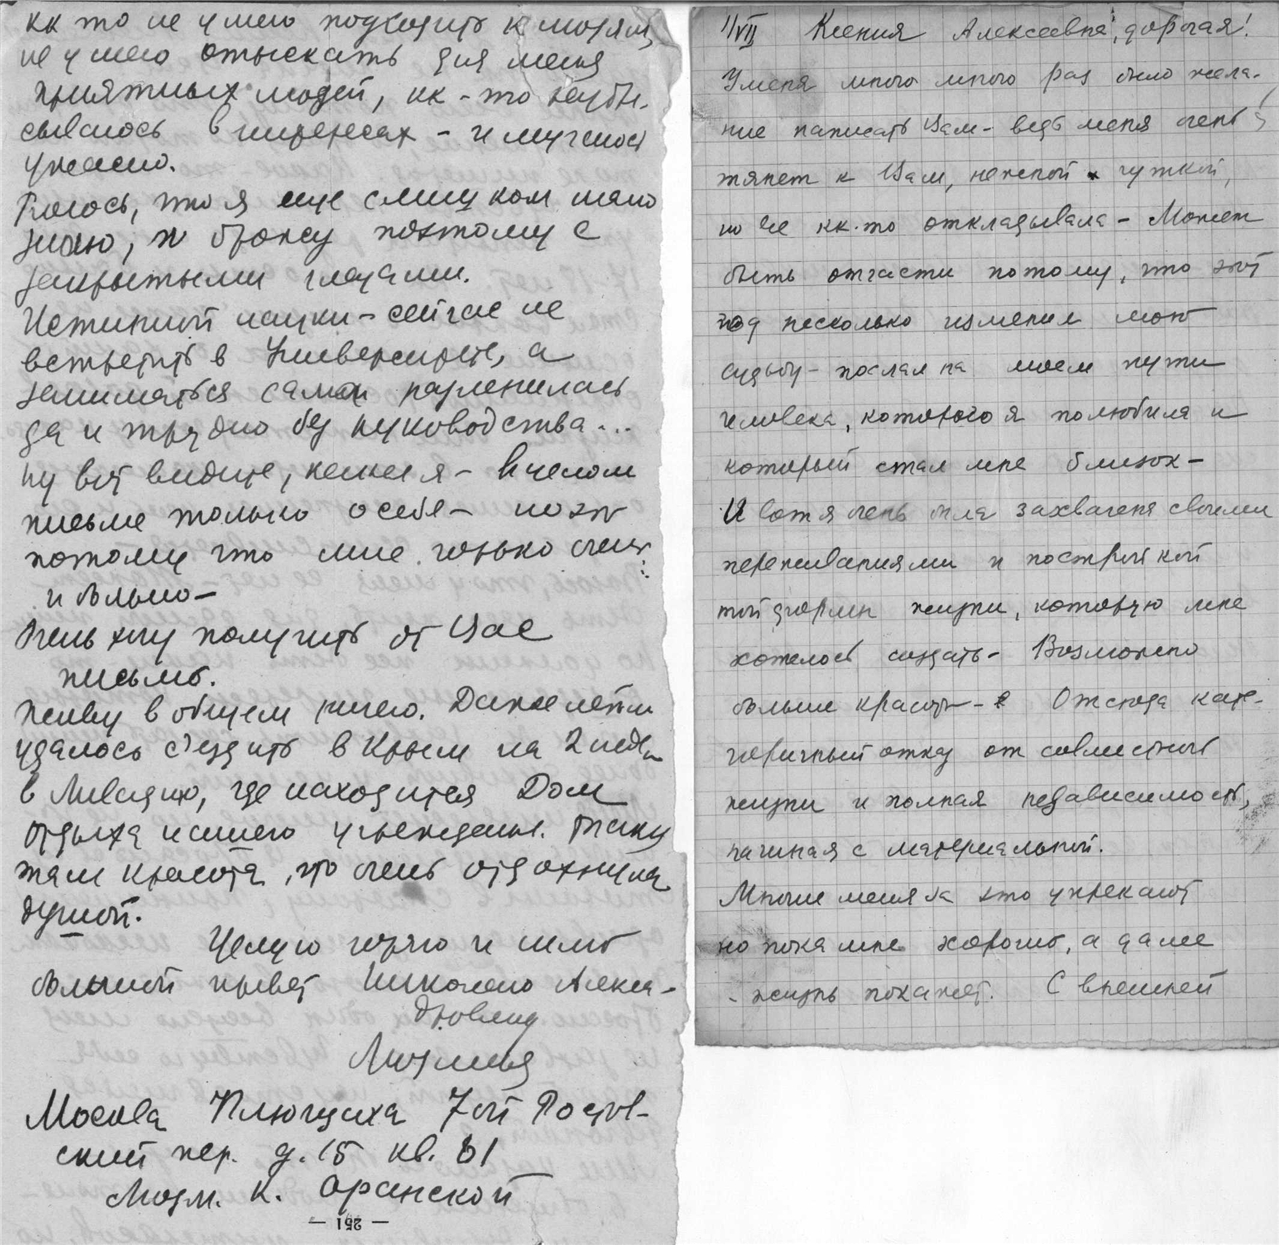 кк то не умею подходить к людям,
не умею отыскать для меня
приятных людей, кк-то
в интересах - и мучаюсь
ужасно.
Боюсь, что я еще слишком мало
знаю, и брожу поэтому с
закрытыми глазами.
Истинной науки - сейчас не
встретить в Университете, а
заниматься самой разленилась
да и трудно без руководства...
ну вот видите, какая я - в целом
письме только о себе - но это
потому что мне только очень
и больно -
Очень хочу получить от Вас
письмо.
Живу в общем ничего. Даже летом
удалось с'ездить в Крым на 2 недели
в Ливадию, где находится Дом
отдыха нашего учрежденья. Такая
там красота, что очень отдохнула
душой.
Целую горячо и шлю
большой привет Николаю Алекса-
дровичу
Людмила
Москва Плющиха 7ой Ростов-
ский пер. д. 15 кв. 81
Людм. К. Оранской
— 251 —
11/VII Ксения Алексеевна, дорогая!
У меня много много раз было жела-
ние написать Вам - ведь меня очень
тянет к Вам, нежной и чуткой,
но все кк-то откладывала - Может
быть отчасти потому, что этот
год несколько изменил мою
судьбу - послал на моем пути
человека, которого я полюбила и
который стал мне близок -
И вот я очень была захвачена своими
переживаниями и постройкой
той формы жизни, которую мне
хотелось создать - Возможно
больше красоты - Отсюда кате-
горичный отказ от совместной
жизни и полная независимость,
начиная с материальной.
Многие меня за это упрекают
но пока мне хорошо, а далее
- жизнь покажет. С внешней